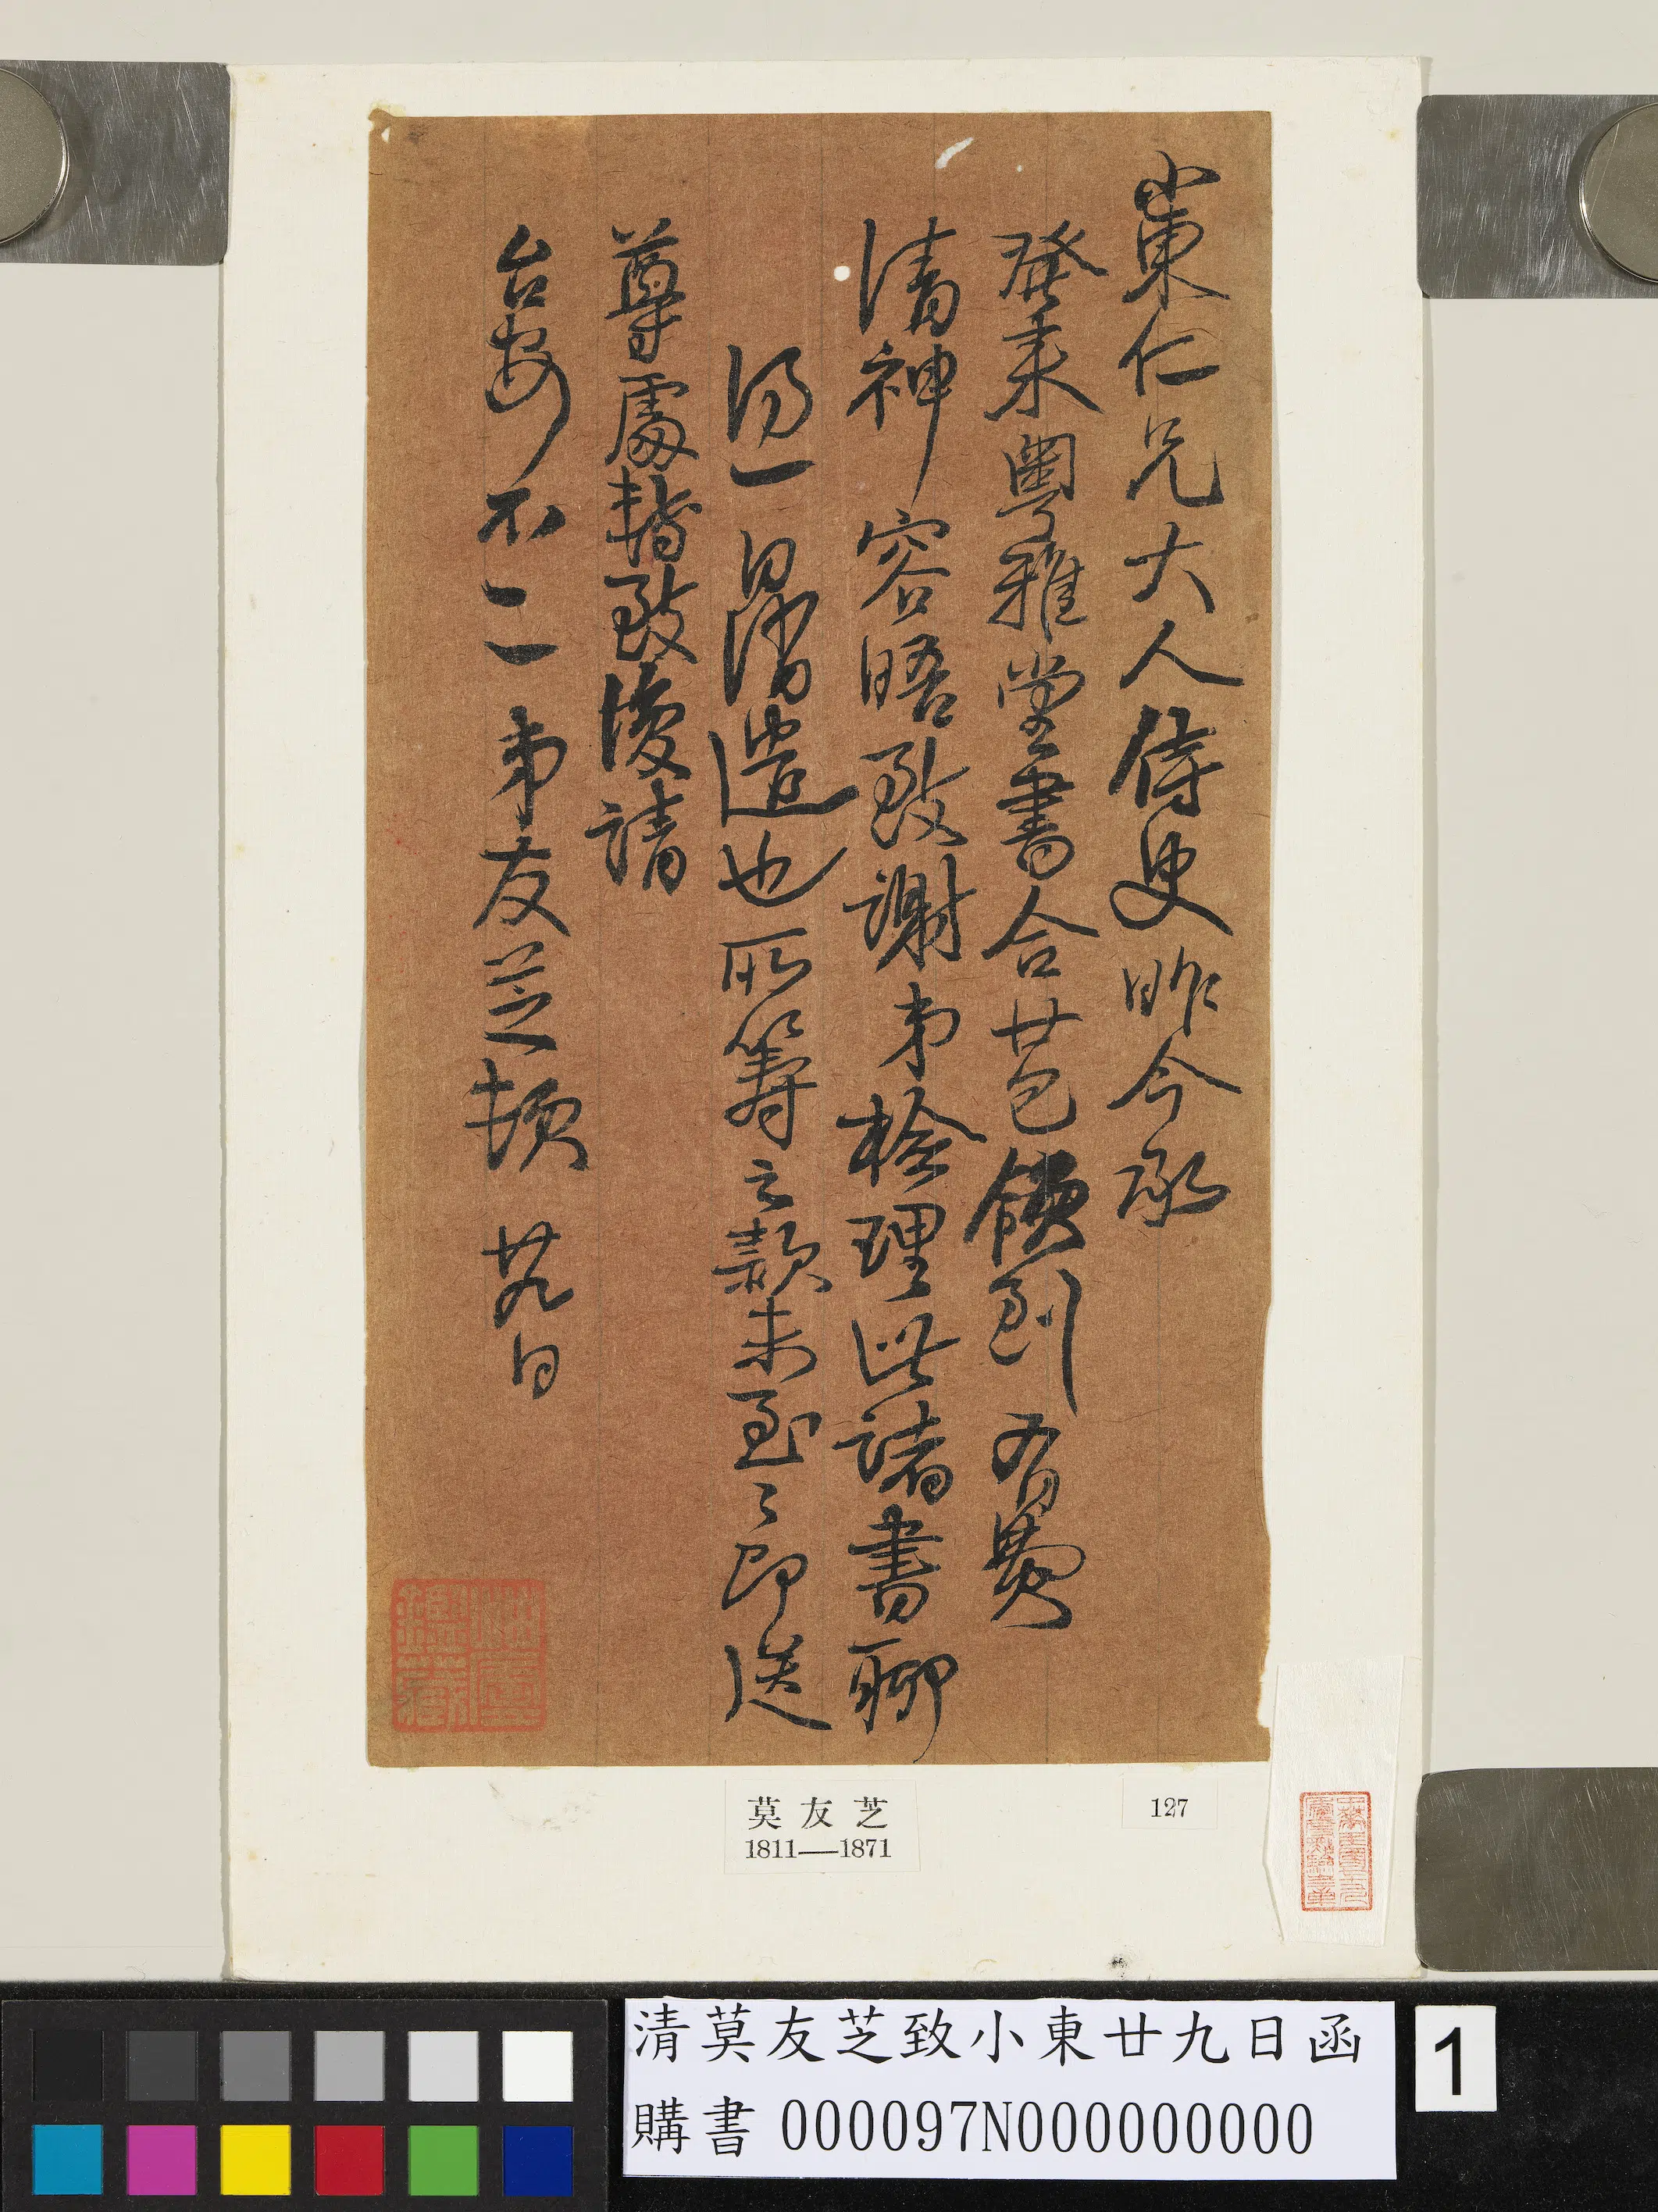 小東仁兄大人侍史昨今承
發來粵雅堂書合廿包領到有費
清神容晤致謝弟檢理此諸書聊
一消遣也所籌之款未至〻即送
尊處轉致復請
台安不一一弟友芝頓 廿九日
莫友芝
1811—1871
127
清莫友芝致小東廿九日函
購書 000097N000000000
1